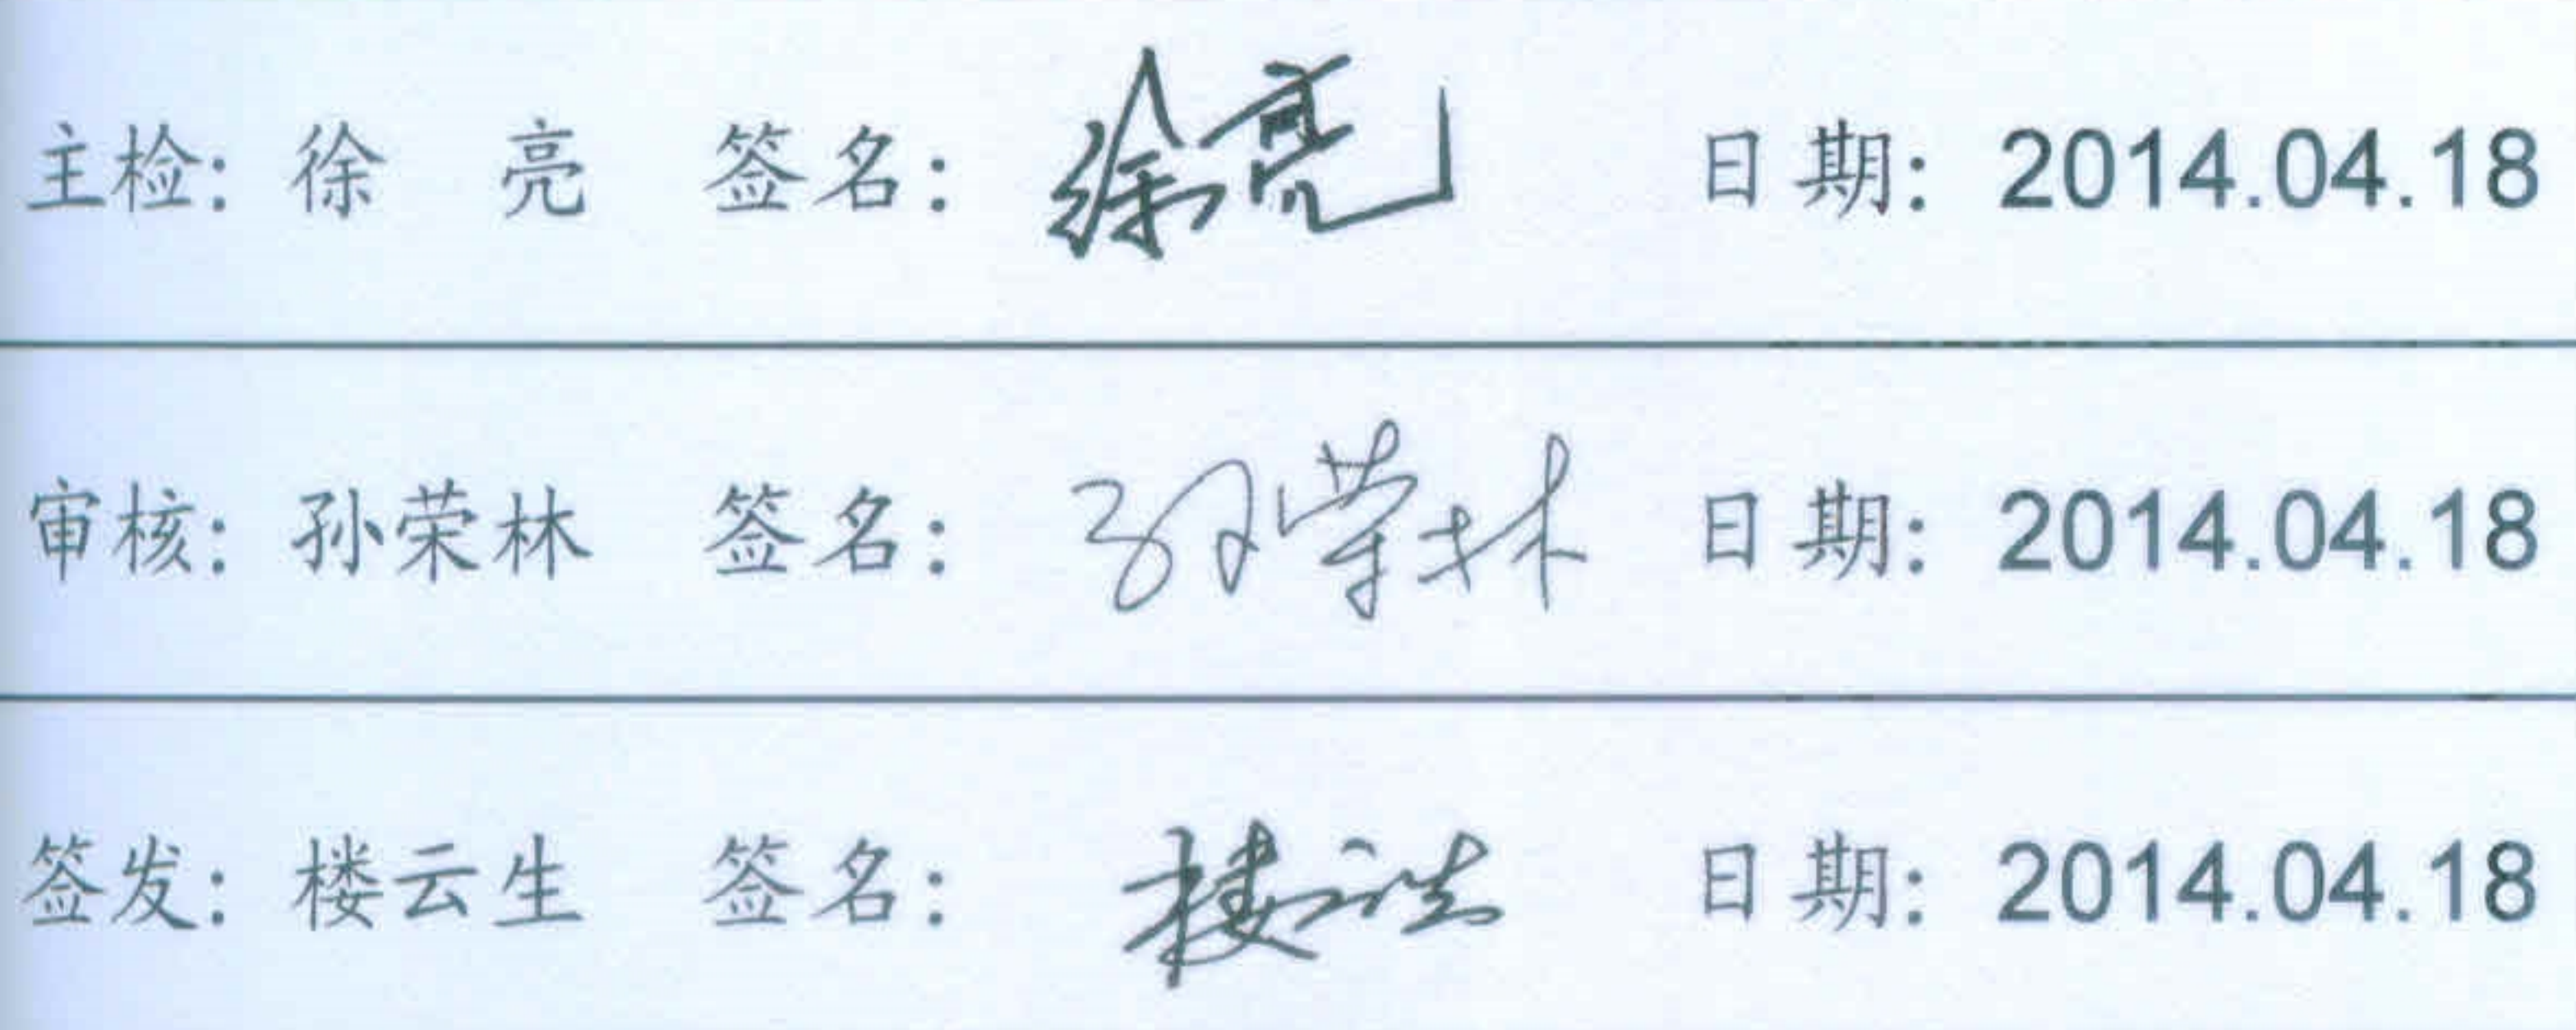 主检: 徐 亮 签名: 徐亮 日期: 2014.04.18
审核: 孙荣林 签名: 孙荣林 日期: 2014.04.18
签发: 楼云生 签名: 楼云生 日期: 2014.04.18